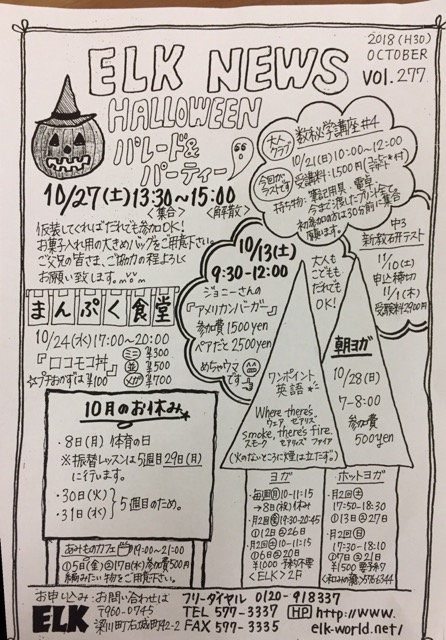 2018(H30)
OCTOBER
ELK NEWS
VOL.277
HALLOWEEN
パレード&
パーティー
10/27(土)13:30~15:00
<集合> <解散>
仮装してくればだれでも参加OK!
お菓子入れ用の大きめバッグをご用意下さい。
ご父兄の皆さま、ご協力の程よろしく
お願い致します。
大人
クラブ
数秘学講座#4
10/21(日)10:00~12:00
今回が
ラストです
受講料:1,500円
持ち物:筆記用具・電卓
今まで渡したプリント全て
初参加の方は30分前に集合
願います。
中3
新教研テスト
11/10(土)
申込締切
11/1(木)
受験料2900円
まんぷく食堂
10/24(水)17:00~20:00
『ロコモコ丼』
ミニ ¥300
並 ¥500
メガ ¥700
☆プチおかずは¥100
10/13(土)
9:30-12:00
ジョニーさんの
『アメリカンバーガー』
参加費1500yen
ペアだと2500yen
めちゃウマ
です
大人も
こどもも
だれでも
OK!
ワンポイント
英語
Where there's
ウェア、ゼアリズ
smoke, there's fire.
スモーク ゼアリズ ファイア
(火のないところに煙は立たず。)
朝ヨガ
10/28(日)
7-8:00
参加費
500yen
10月のお休み
・8日(月)体育の日
※振替レッスンは5週目29日(月)
に行います。
・30日(火)
・31日(水)
5週目のため。
あみものカフェ 19:00~21:00
①5日(金)②17日(水)参加費500円
編みたい物をご用意下さい。
ヨガ
・毎週(月)10-11:15
→8日(祝)休み
・月2回(金)19:30-20:45
①12日②26日
・月2回(土)10-11:15
①6日②20日
¥1000 予約不要
<ELK>2F
ホットヨガ
・月2回(土)
17:50-18:30
①13日②27日
・月2回(日)
17:30-18:10
①7日②21日
¥1500 要予約
お申し込み・お問い合わせは
フリーダイヤル 0120-918337
ELK
〒960-0745
梁川町右城町42-2
TEL 577-3337
FAX 577-3335
HP http://www.
elk-world.net/